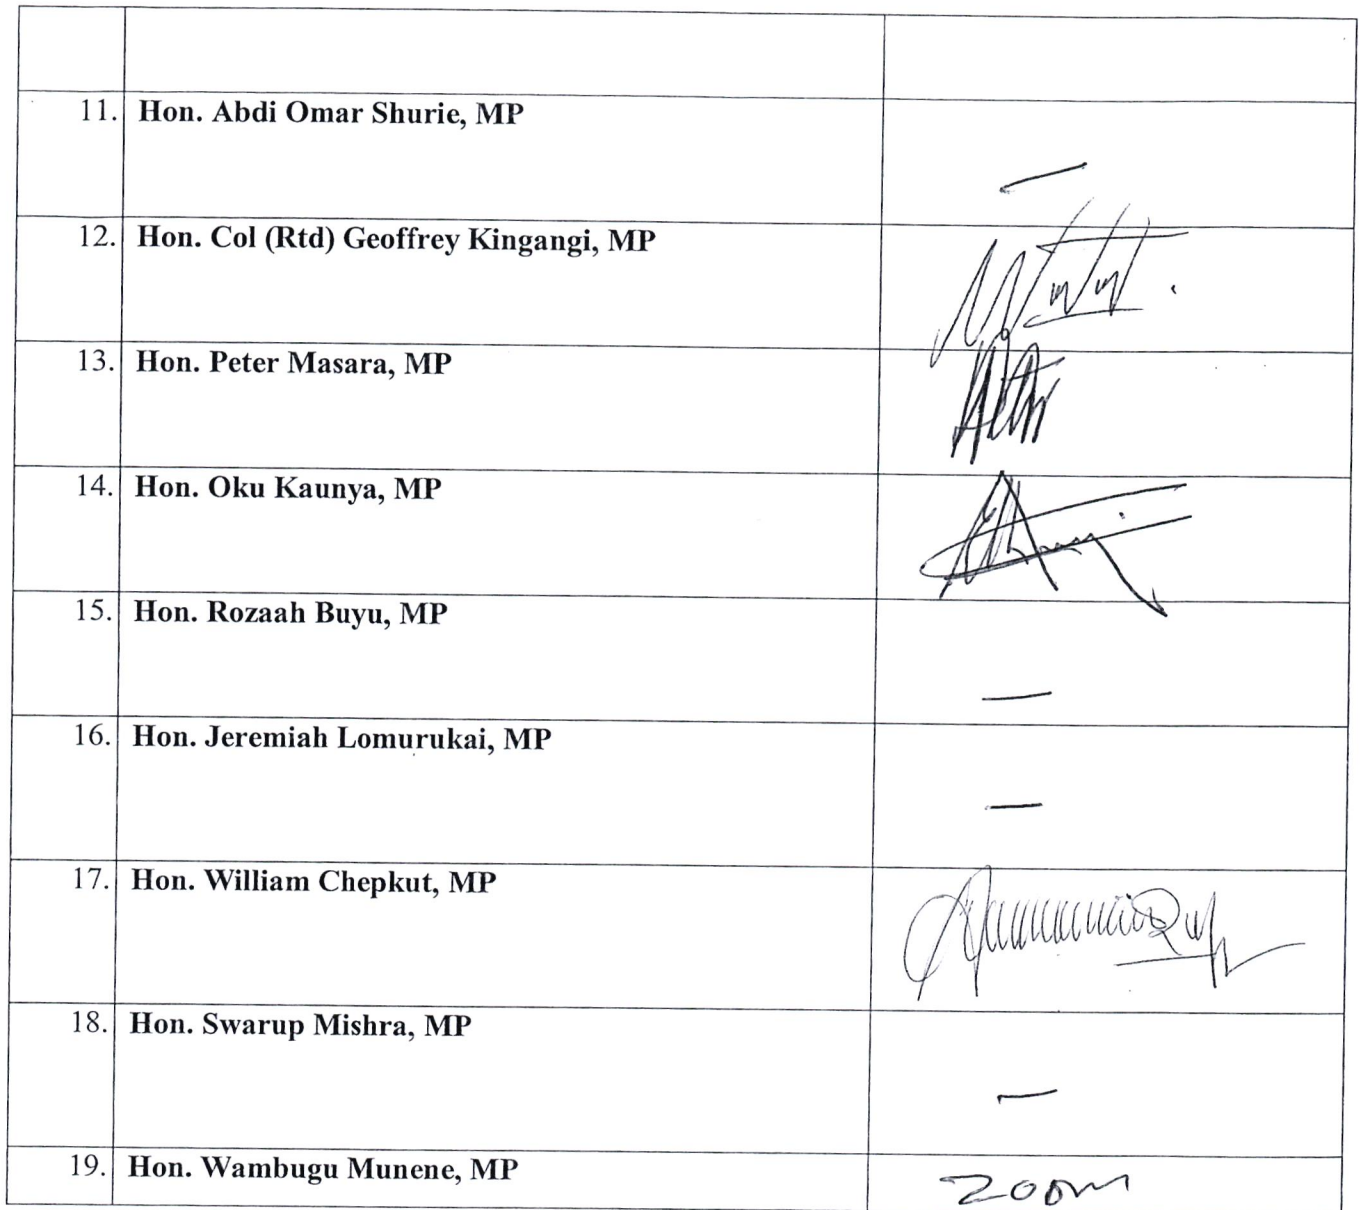 11. Hon. Abdi Omar Shurie, MP
—
12. Hon. Col (Rtd) Geoffrey Kingangi, MP
13. Hon. Peter Masara, MP
14. Hon. Oku Kaunya, MP
15. Hon. Rozaah Buyu, MP
—
16. Hon. Jeremiah Lomurukai, MP
—
17. Hon. William Chepkut, MP
18. Hon. Swarup Mishra, MP
—
19. Hon. Wambugu Munene, MP ZOOM